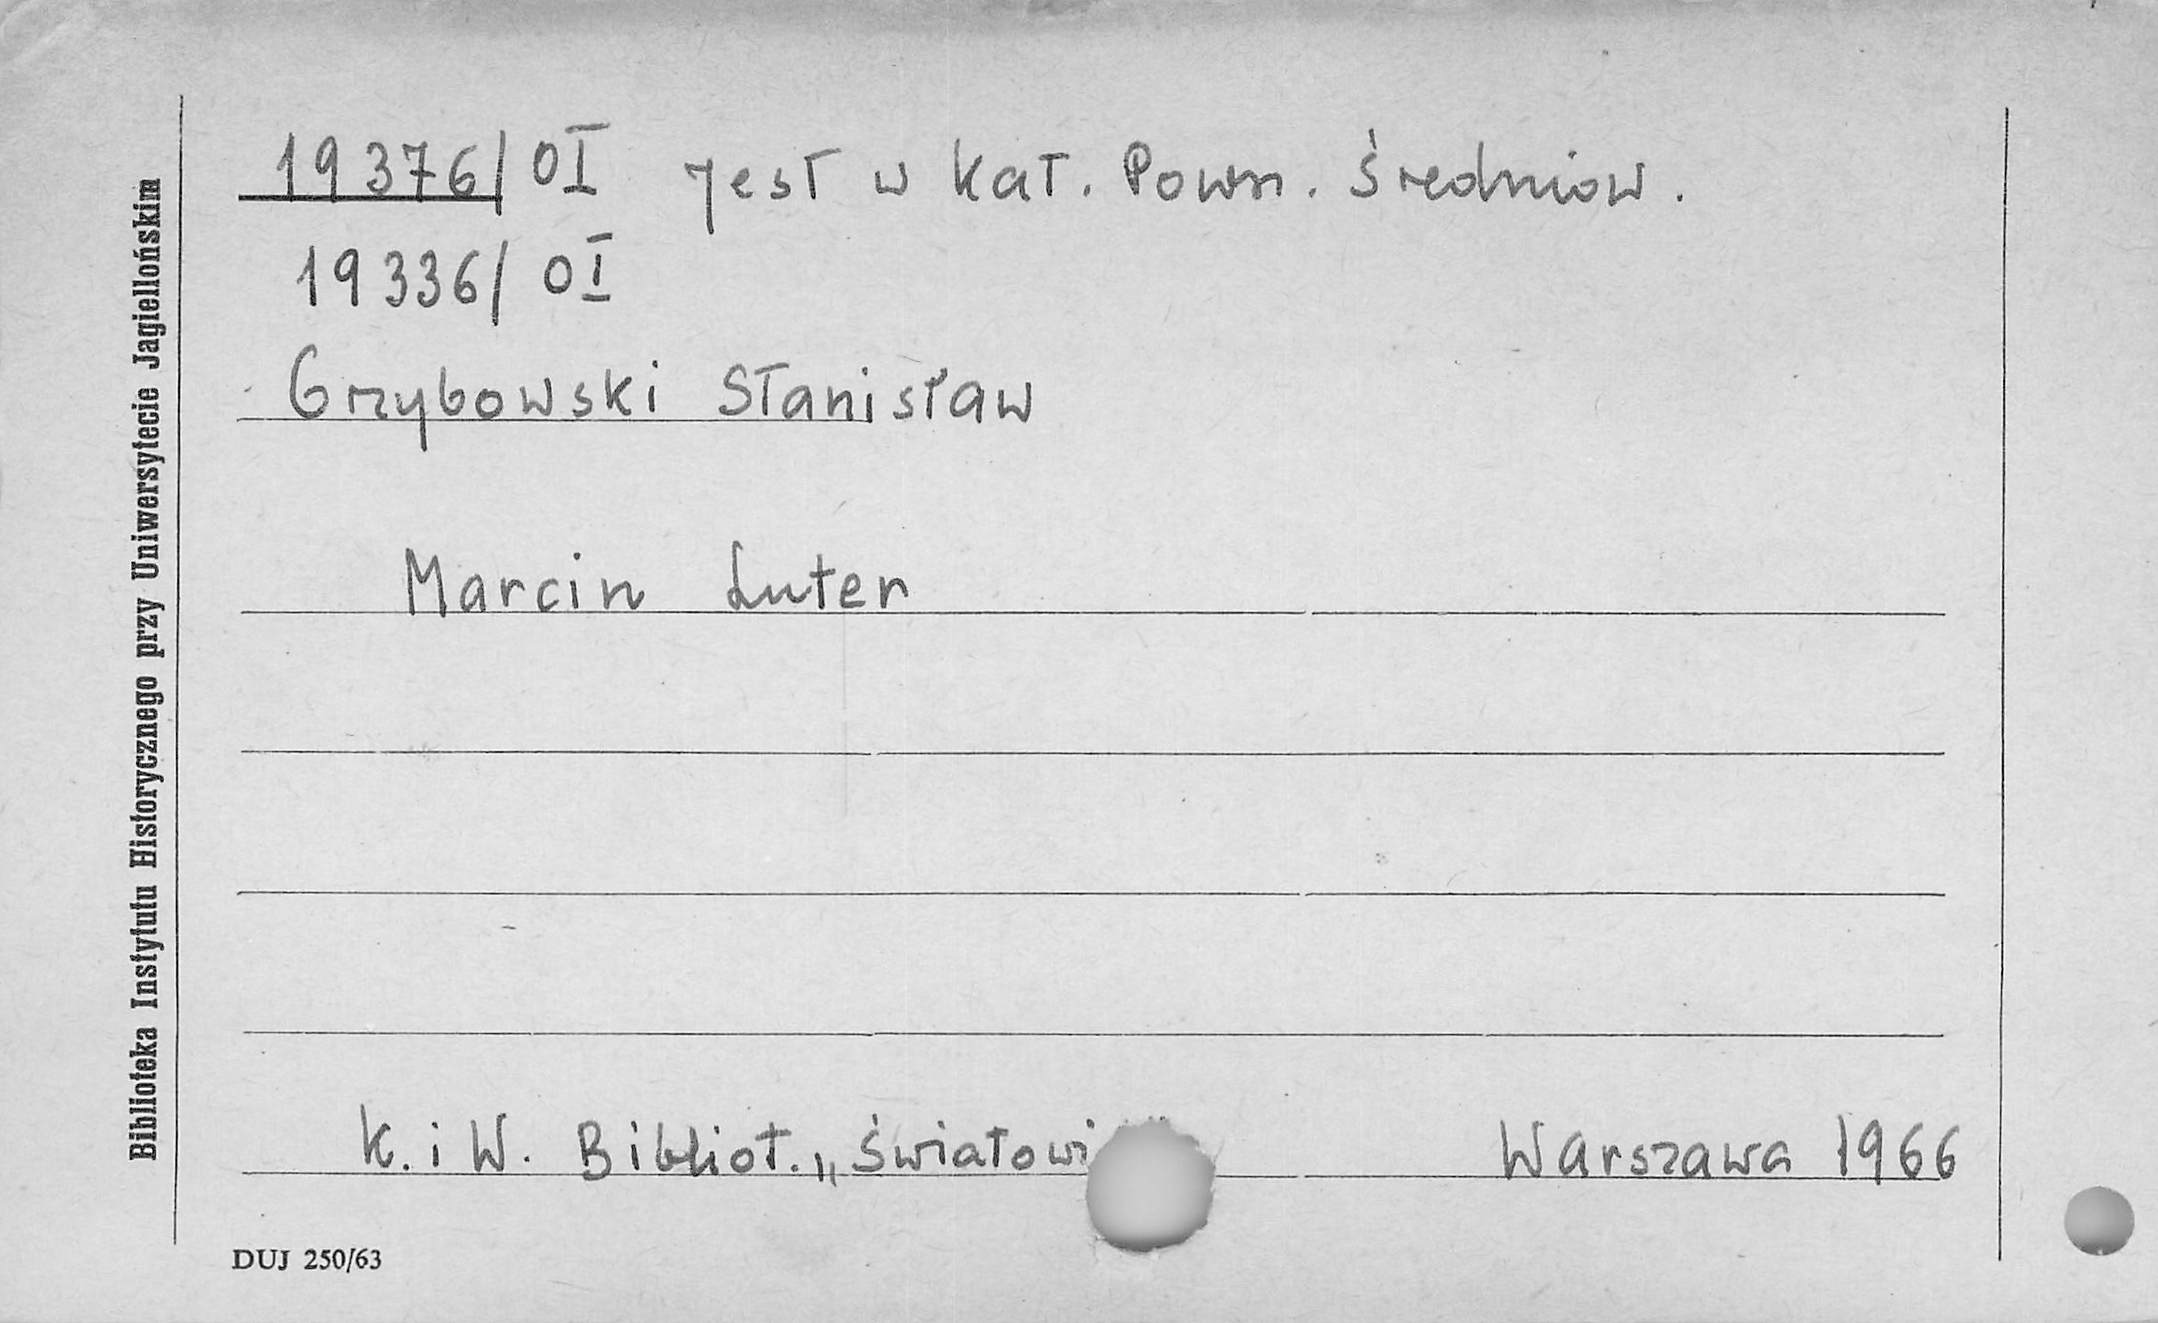 19376/OI jest w Kat. Pown. Średniow.
19336/OI
Grzybowski Stanisław
Marcin Luter
K. i W. Bibliot. „Światowi Warszawa 1966
Biblioteka Instytutu Historycznego przy Uniwersytecie Jagiellońskim
DUJ 250/63